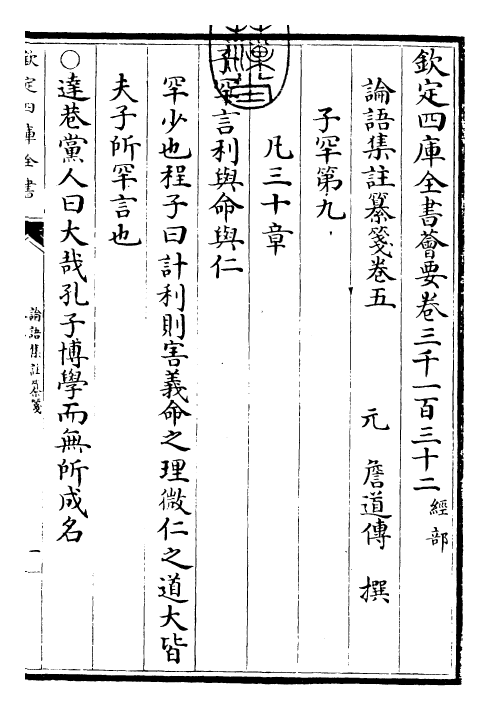 欽定四庫全書薈要卷三千一百三十二 經部
論語集註纂箋卷五 元 詹道傳 撰
子罕第九
凡三十章
子罕言利與命與仁
罕少也程子曰計利則害義命之理微仁之道大皆
夫子所罕言也
○達巷黨人曰大哉孔子博學而無所成名
欽定四庫全書
論語集註纂箋
一